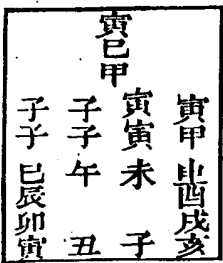 寅巳甲
寅甲 申酉戌亥
寅寅 未 子
子子 午 丑
子子 巳辰卯寅